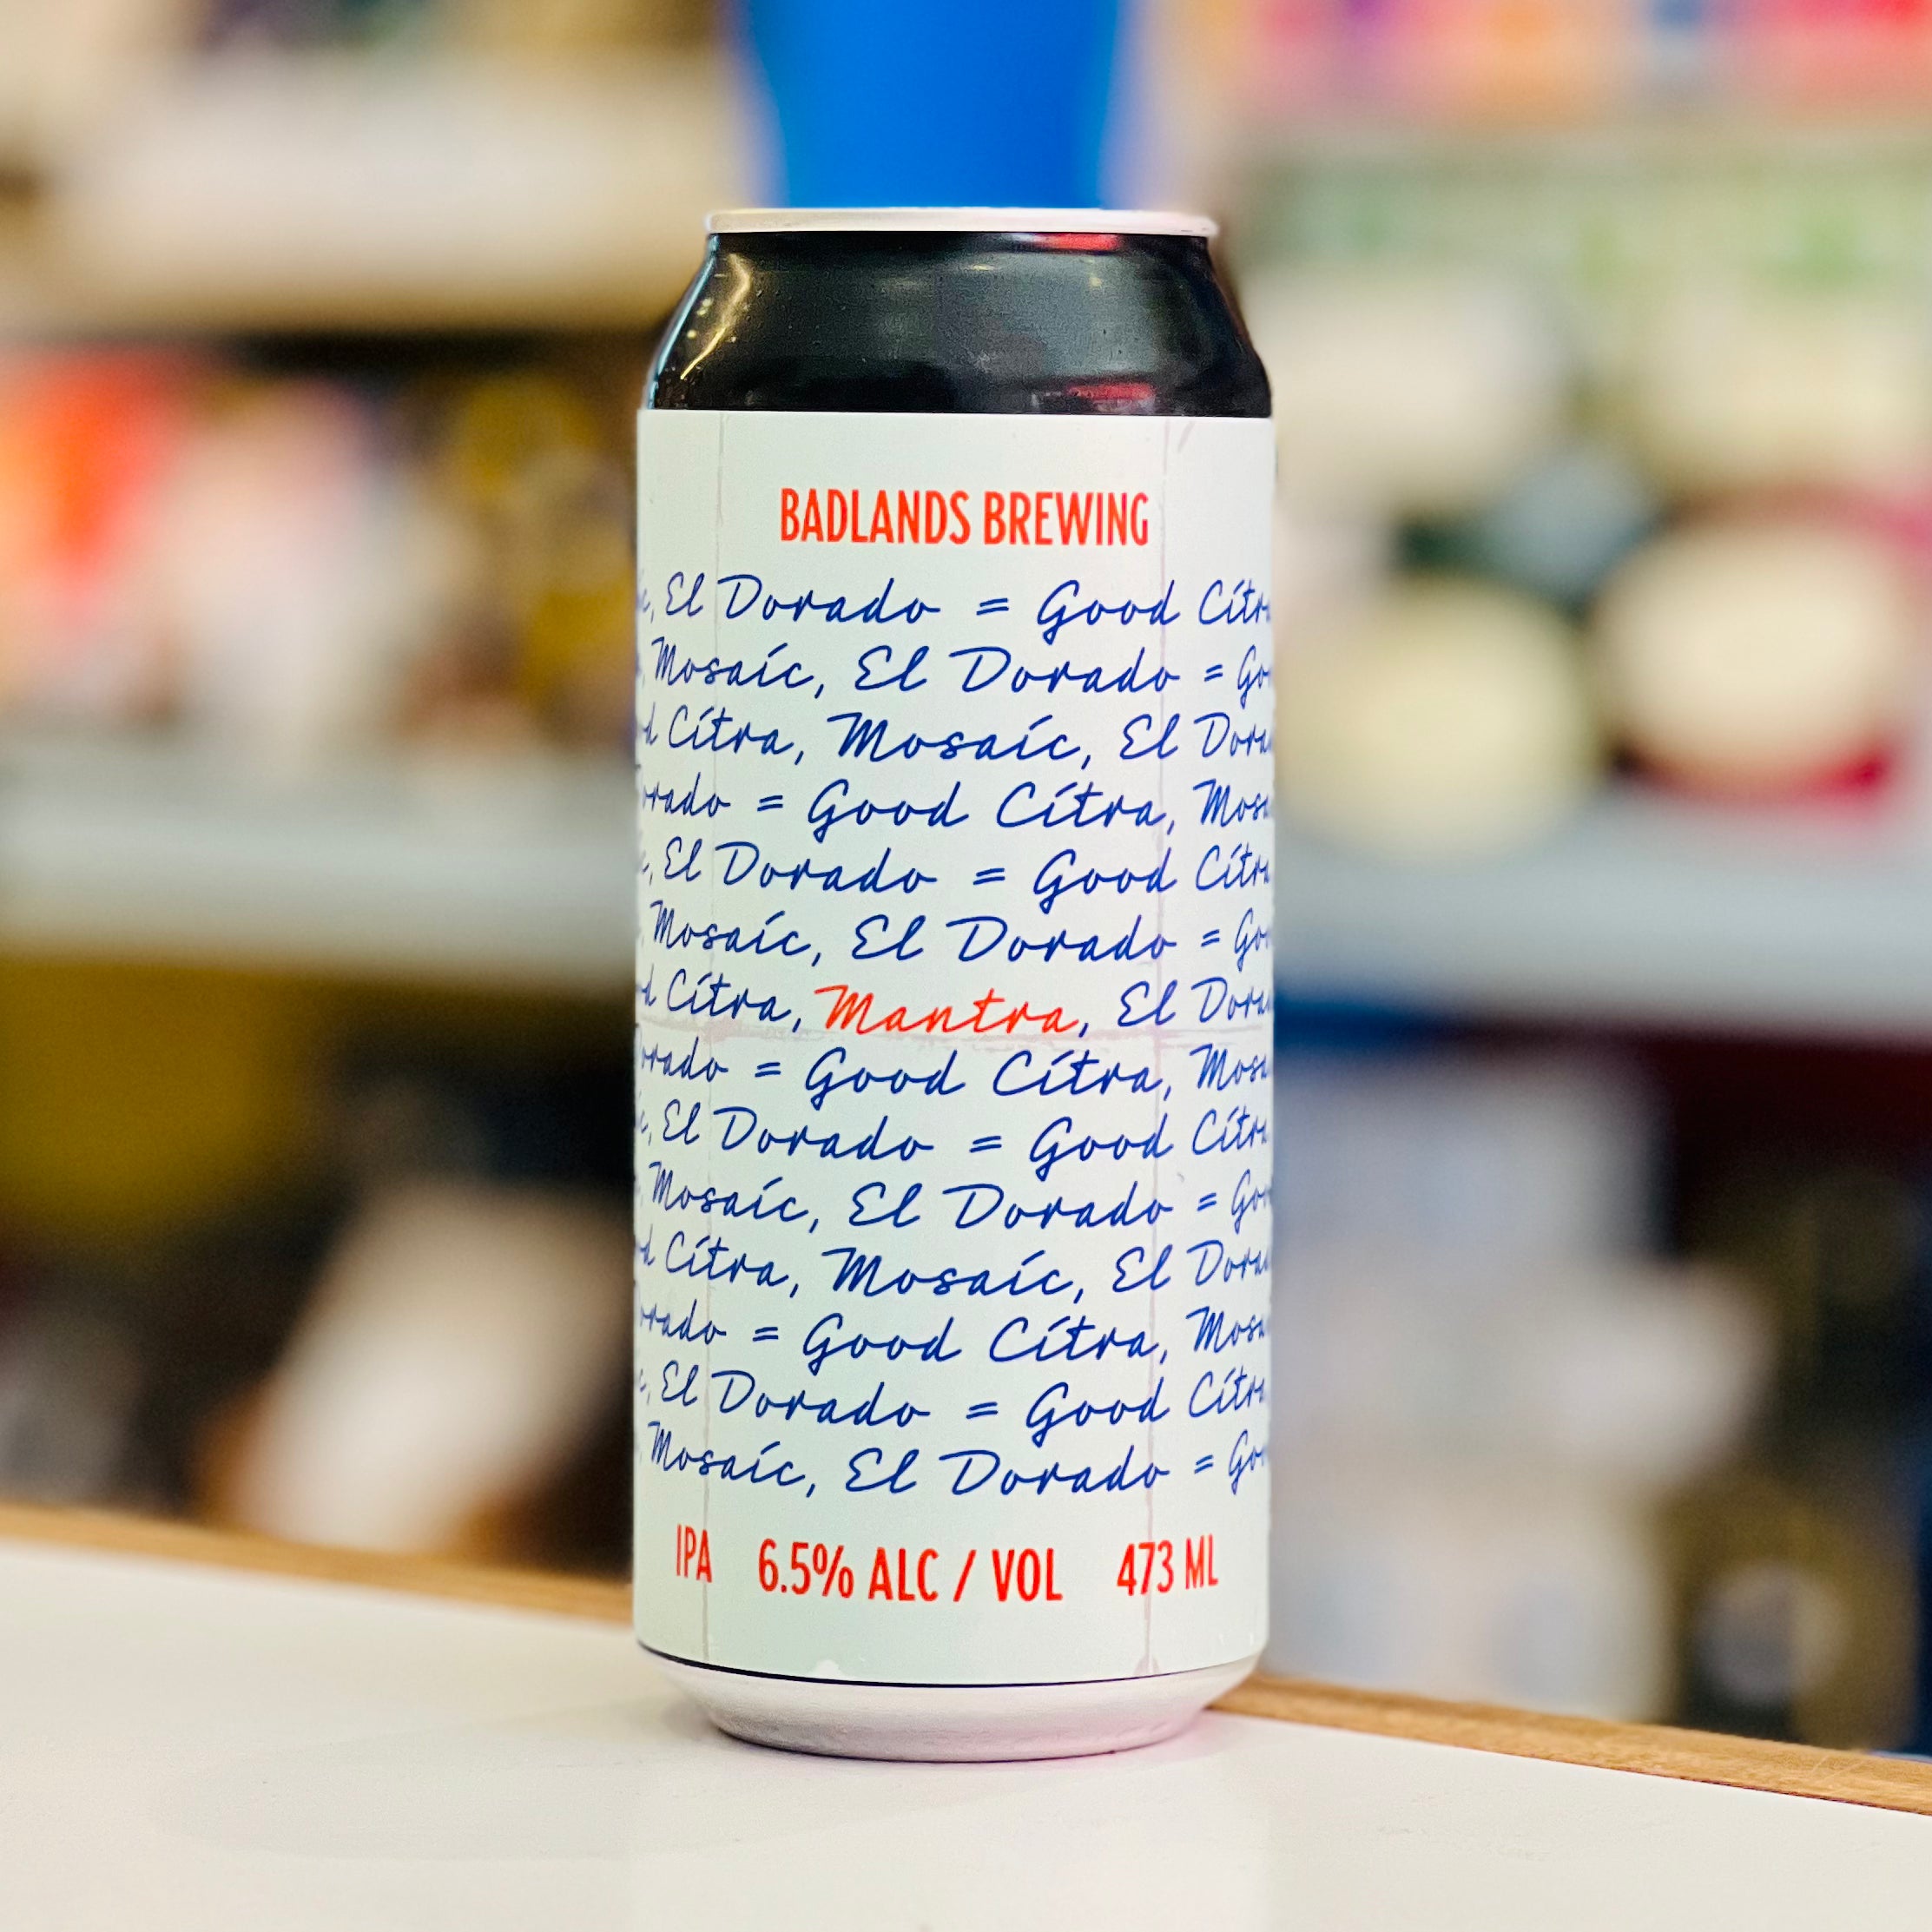 BADLANDS BREWING
El Dorado = Good Citra
Mosaic, El Dorado = Good
Citra, Mosaic, El Dorado
Dorado = Good Citra, Mosaic
El Dorado = Good Citra
Mosaic, El Dorado = Good
Citra, Mantra, El Dorado
Dorado = Good Citra, Mosaic
El Dorado = Good Citra
Mosaic, El Dorado = Good
Citra, Mosaic, El Dorado
Dorado = Good Citra, Mosaic
El Dorado = Good Citra
Mosaic, El Dorado = Good
IPA 6.5% ALC / VOL 473 ML